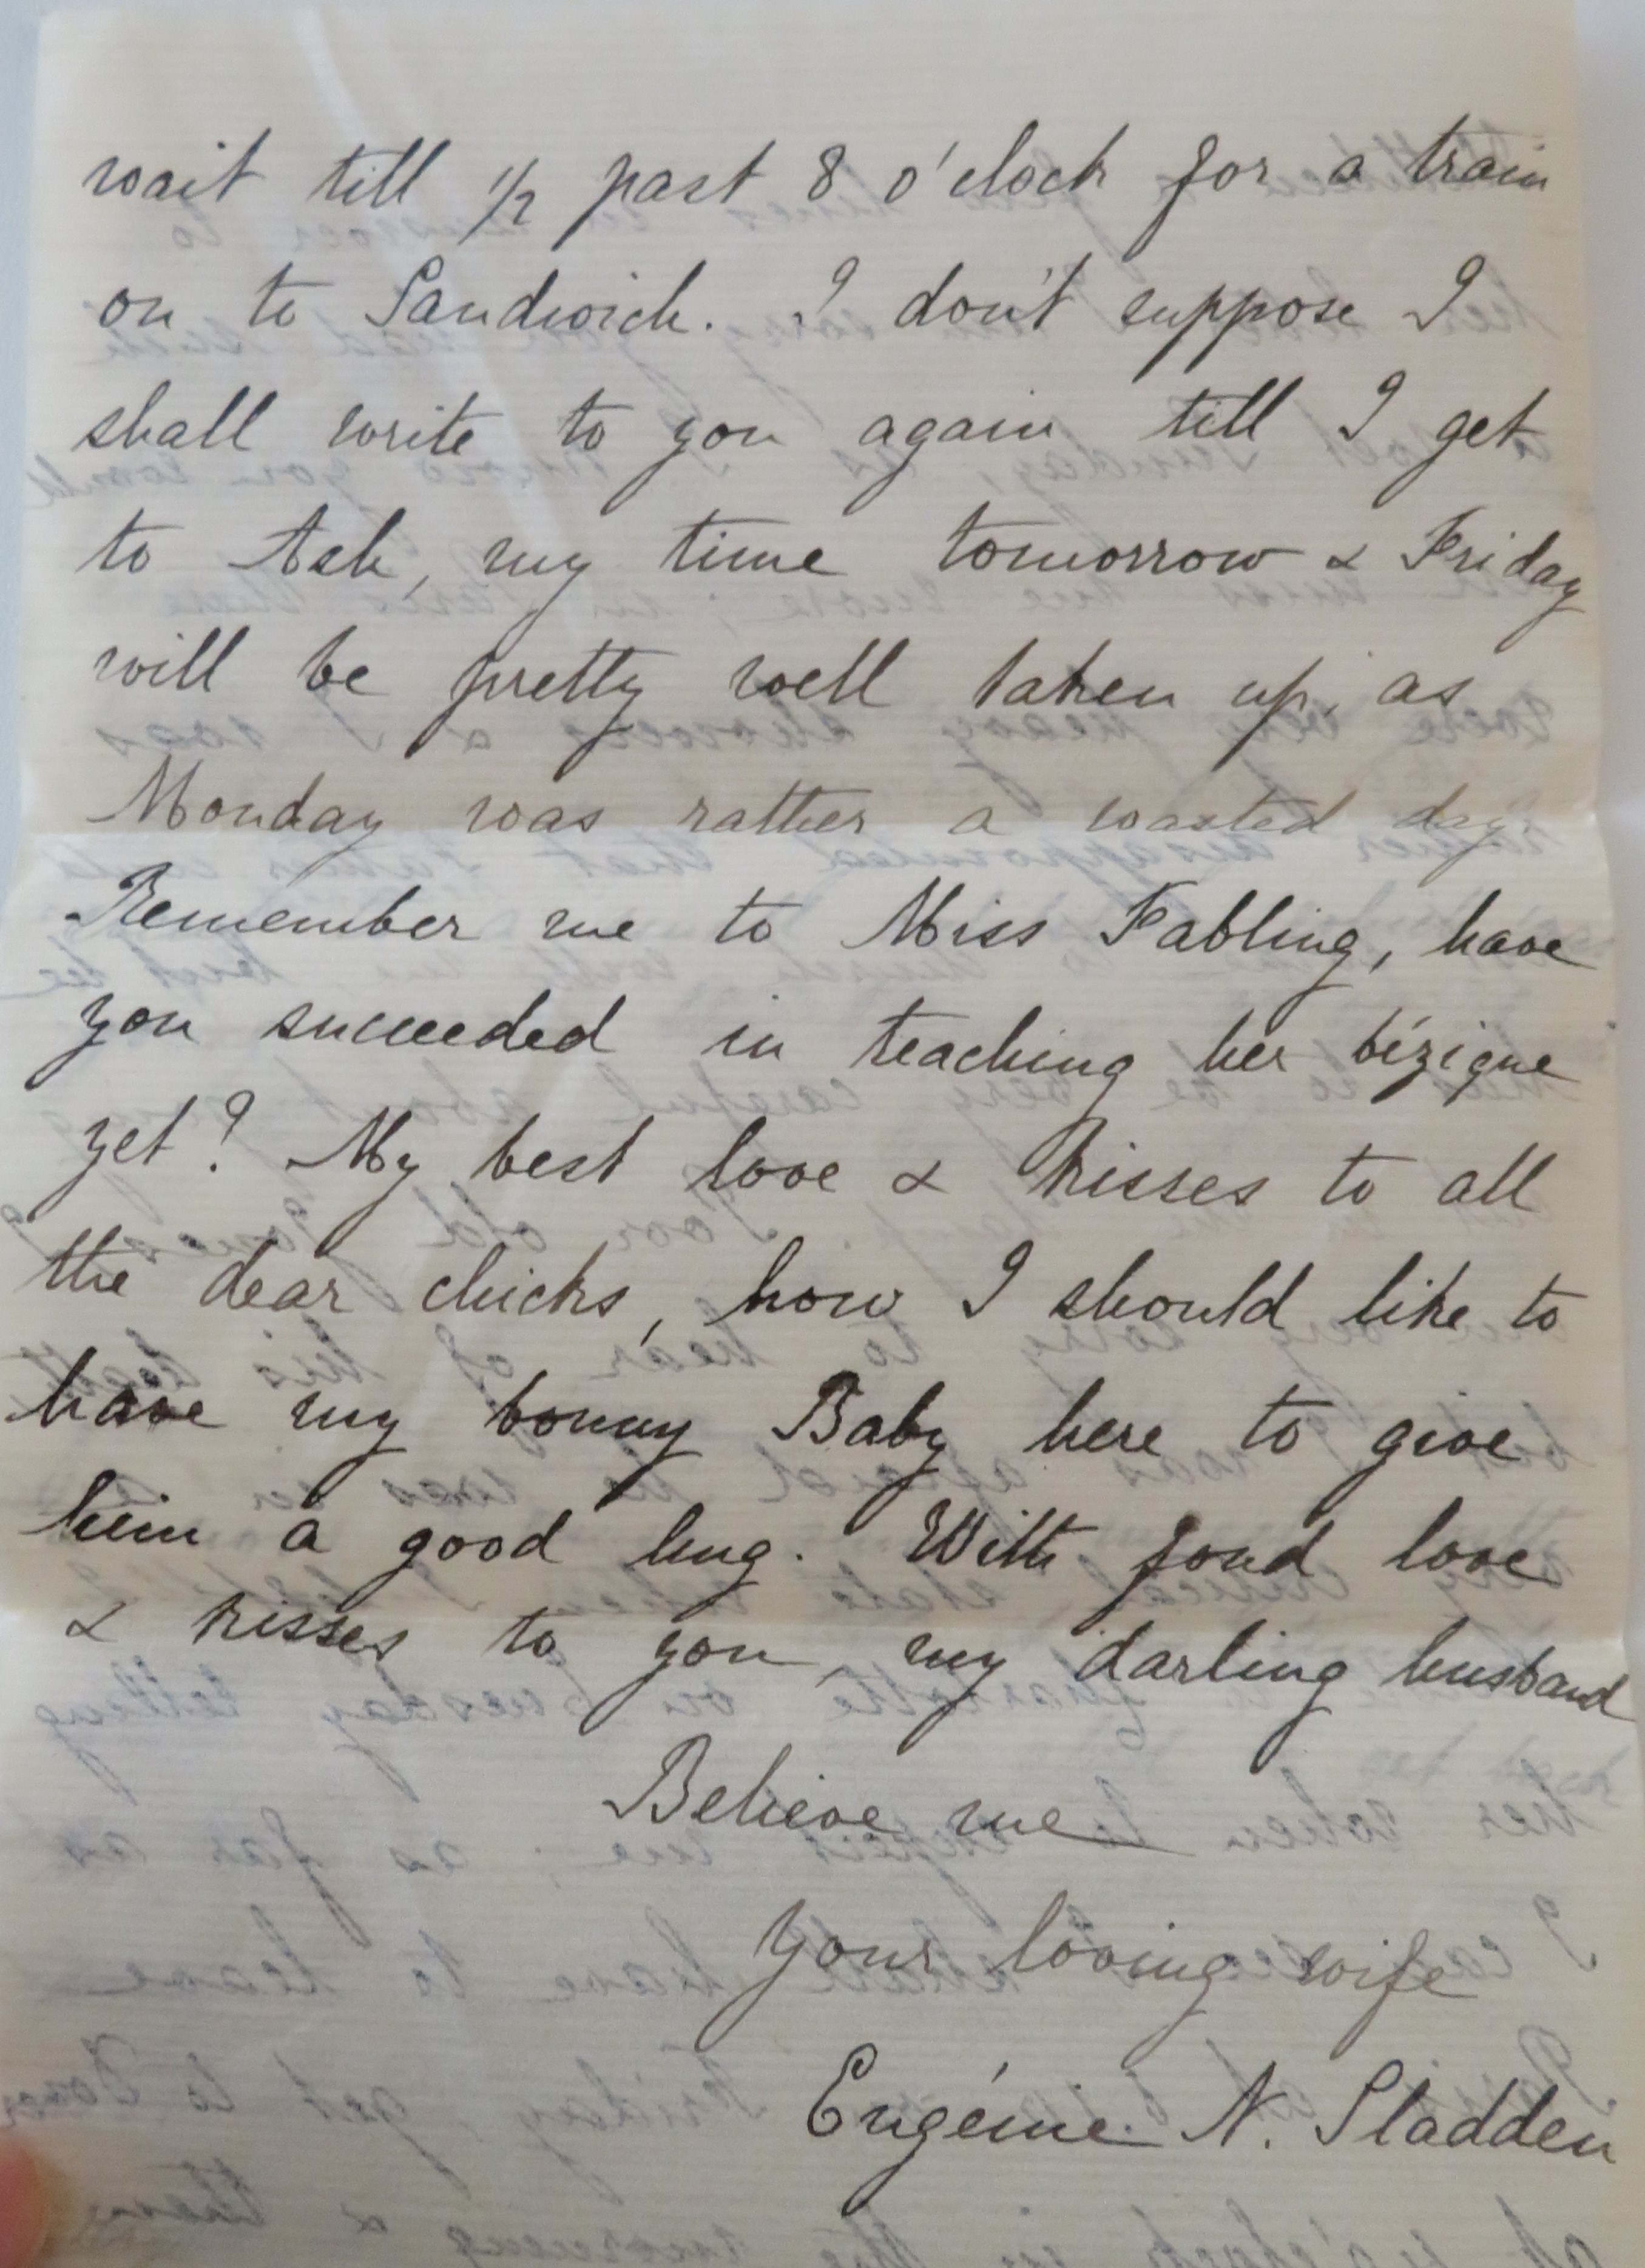 wait till 1/2 past 8 o'clock for a train
on to Sandwich. I don't suppose I
shall write to you again till I get
to Ash, my time tomorrow & Friday
will be pretty well taken up, as
Monday was rather a wasted day.
Remember me to Miss Fabling, have
you succeeded in teaching her bézique
yet? My best love & kisses to all
the dear chicks, how I should like to
have my bonny Baby here to give
him a good hug. With fond love
& kisses to you, my darling husband
Believe me
Your loving wife
Eugénie N. Sladden